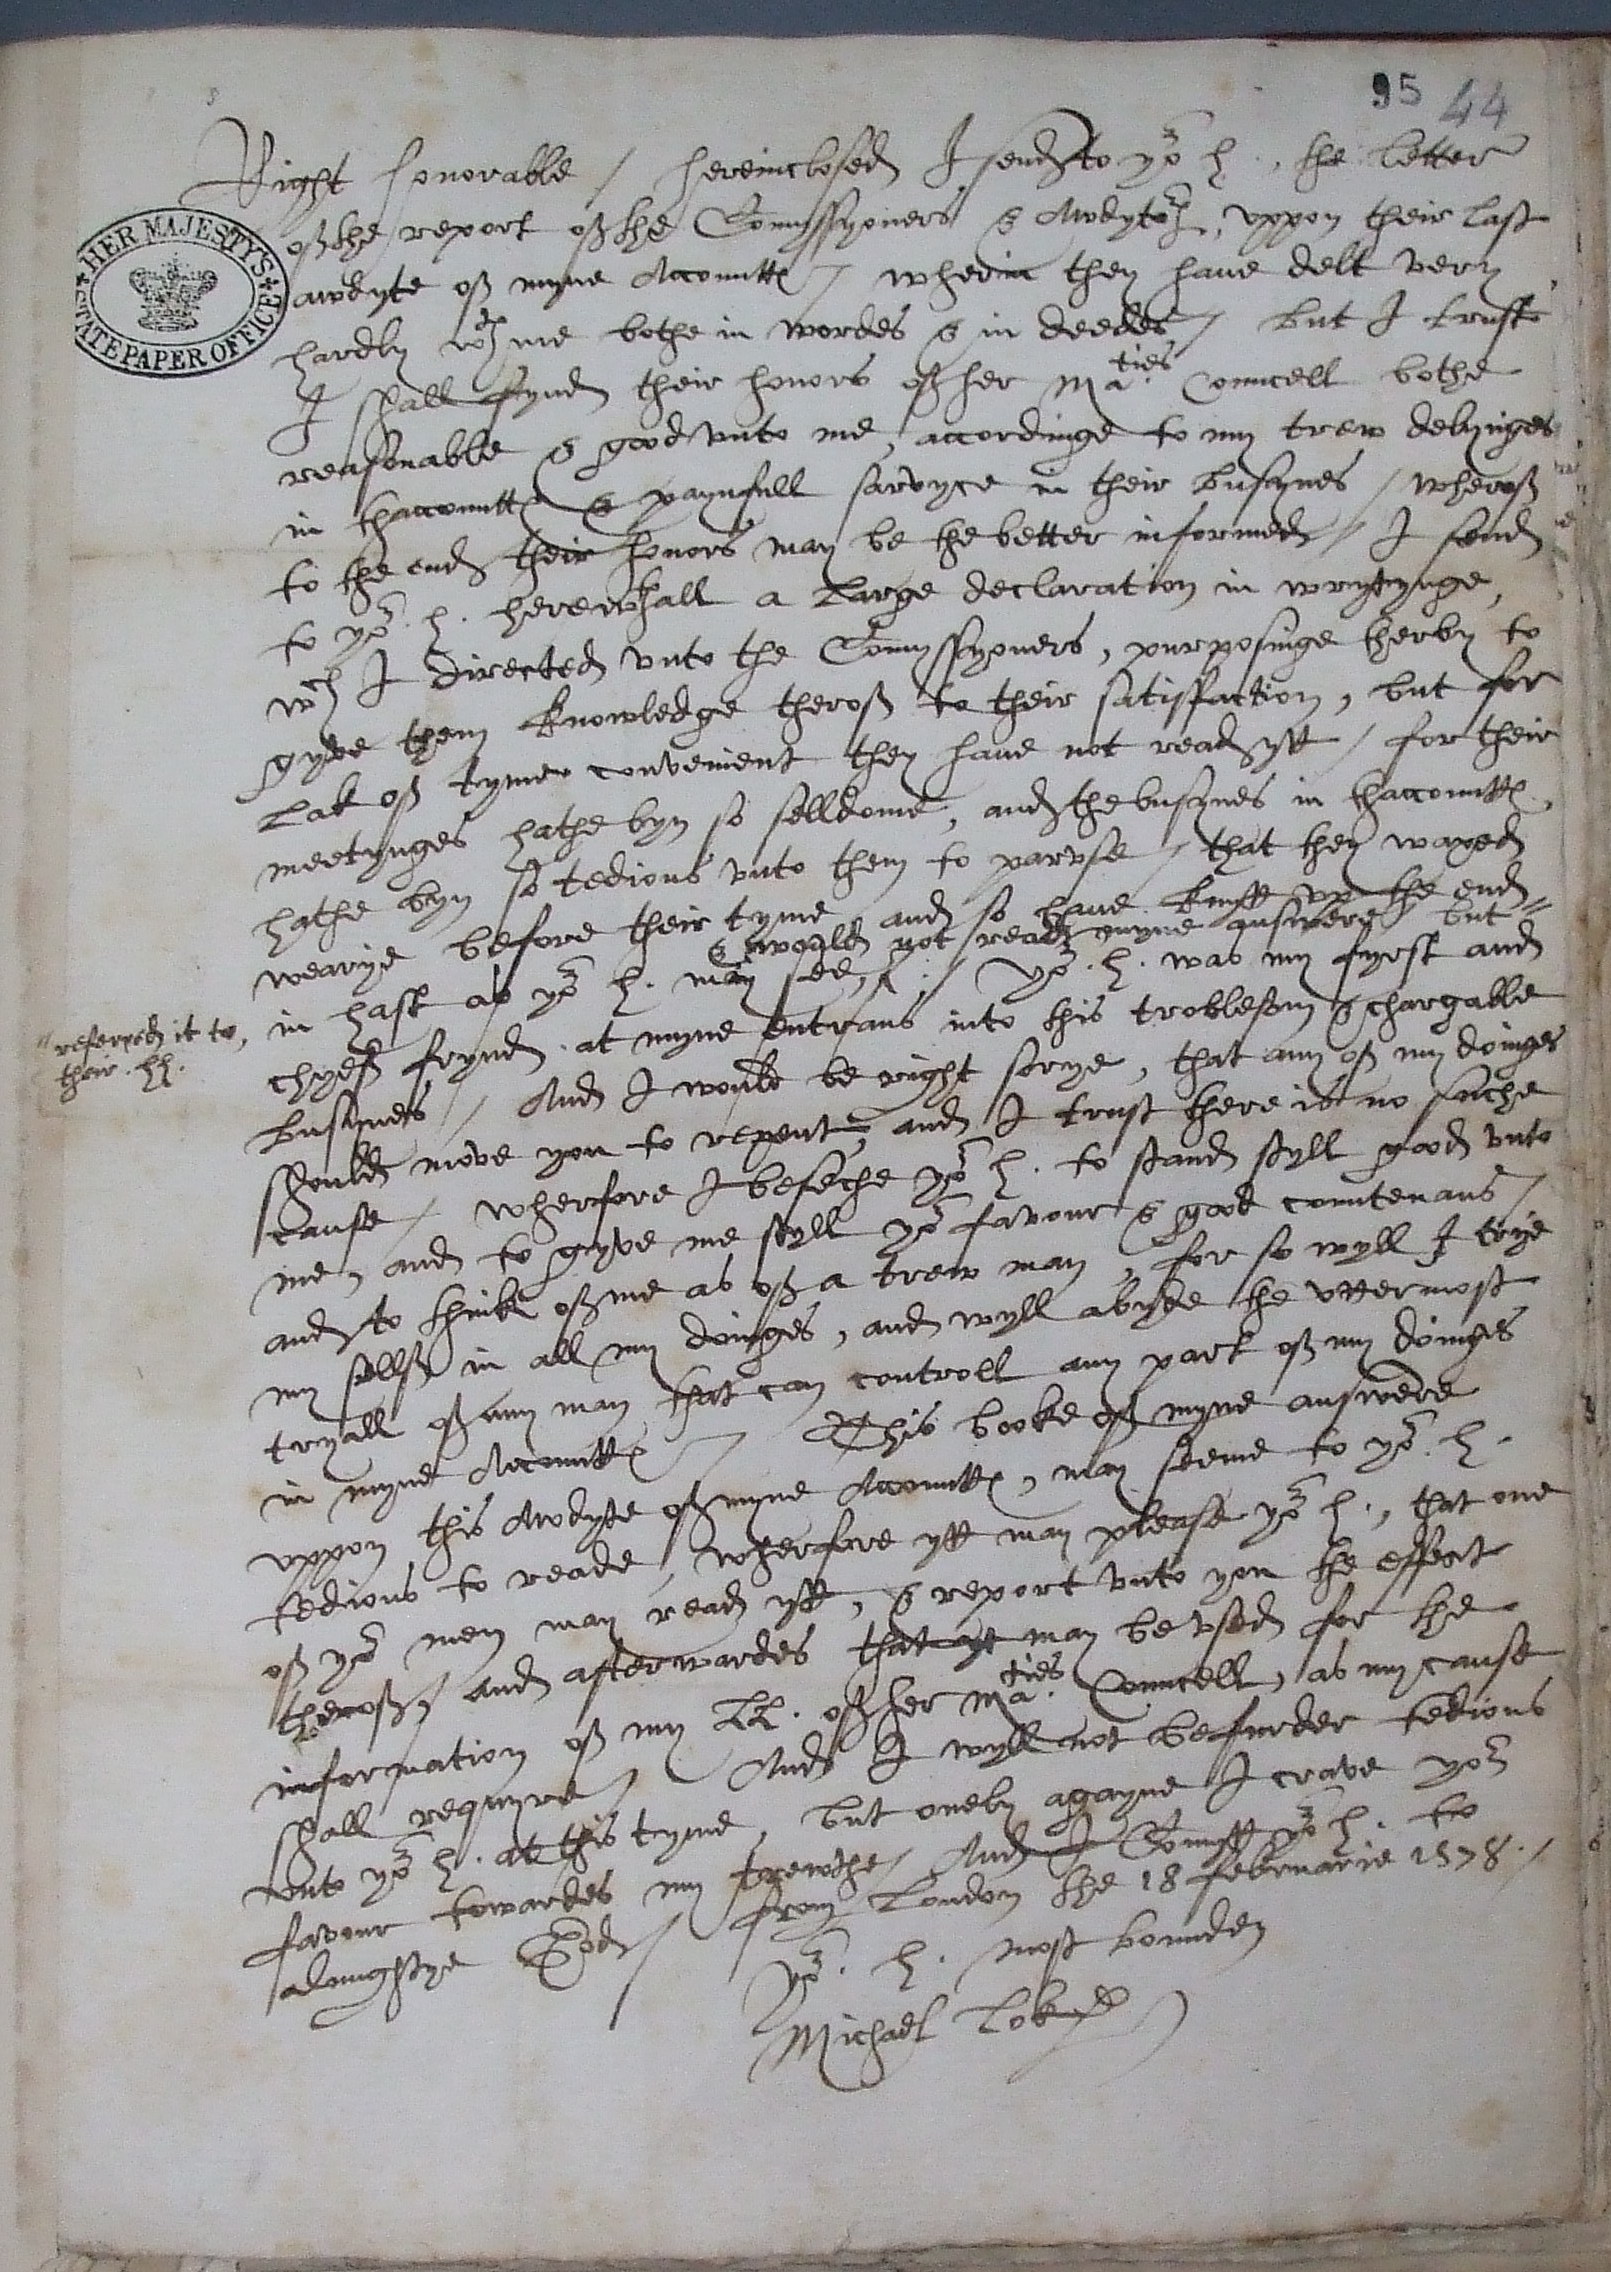 95 44
Right honorable / hereinclosed I send to yor h. the letter
of the report of the Comyssyoners & Awdytors, uppon their last
HER MAJESTY'S
STATE PAPER OFFICE
awdyte of myne Accountes / wherin they have delt very
hardly wth me bothe in wordes & in deedes / but I truste
I shall fynd their honors of her Maties Councell bothe
reasonable & good unto me, accordinge to my trew delynges
in thaccountes & paynfull sarvyce in their busynes / wherof
to the end their honors may be the better informed / I send
to yor. h. herewthall a large declaration in wrytynge,
wch I directed unto the Comyssyoners, purposinge therby to
gyve them knowledge therof to their satisffaction, but for
Lak of tyme convenient they have not read ytt / for their
meetynges hathe byn so selldome, and the busynes in thaccountes
hathe byn so tedious unto them to parvse / that they waxed
wearye before their tyme, and so have knytt up the end
& would not read myne answere / but "
in hast as yor h. may see, ^ / Yor. h. was my fyrst and
" referred it to
their. hh.
chyeff frynd at myne entrans into this troblesom & chargable
busynes / And I would be right sorye, that any of my doinges
should move you to repent, and I trust there is no suche
cause / wherfore I beseche yor h. to stand styll good unto
me, and to gyve me styll yor favour & good countenans /
and to think of me as of a trew man, for so wyll I trye
my sellff in all my doinges, and wyll abyde the uttermost
tryall of any man that can controll any part of my doinges
in myne Accountes / This booke of myne answere
uppon this Awdyte of myne Accountes, may seeme to yor. h.
tedious to reade, wherfore ytt may please yor h., that one
of yor men may read ytt, & report unto you the effect
therof, and afterwardes that yt may be used for the
information of my LL. of her Maties. Councell, as my cause
shall requyre / And I wyll not be furder tedious
unto yor h. at this tyme, but onely agayne I crave yor
favour towardes my trewthe / And I Comytt yor h. to
almyghtye God / from London the 18 februarie 1578. /
yor. h. most bounden
Michael Lok